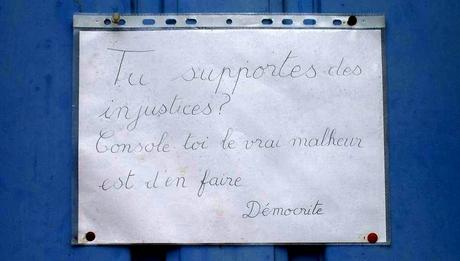 Tu supportes des
injustices?
Console toi le vrai malheur
est d'en faire
Démocrite